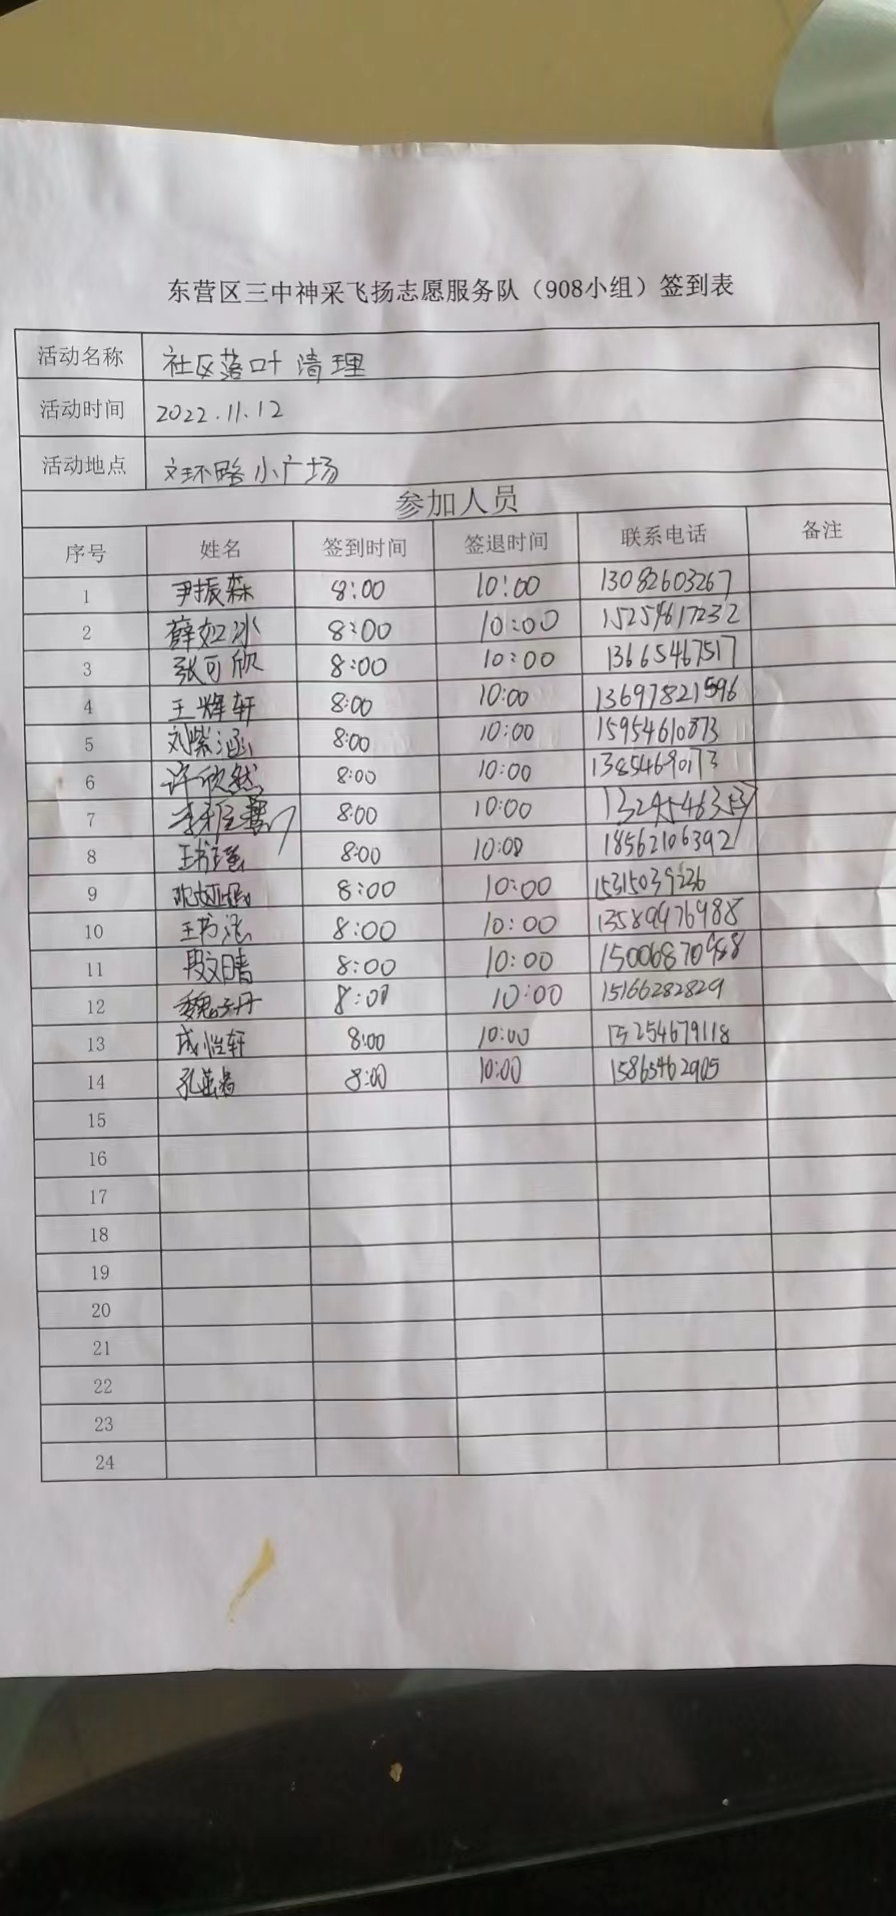 东营区三中神采飞扬志愿服务队（908小组）签到表
活动名称 社区落叶清理
活动时间 2022.11.12
活动地点 文环路小广场
参加人员
序号 姓名 签到时间 签退时间 联系电话 备注
1 尹振森 8:00 10:00 13082603267
2 薛如冰 8:00 10:00 15254617232
3 张可欣 8:00 10:00 13665467517
4 王烽轩 8:00 10:00 13697821596
5 刘紫涵 8:00 10:00 15954610873
6 许欣然 8:00 10:00 13854690173
7 8:00 10:00
8 8:00 10:00 18562106392
9 8:00 10:00 15315039236
10 王书泓 8:00 10:00 13589476988
11 段文晴 8:00 10:00
12 魏子丹 8:00 10:00 15166282829
13 成怡轩 8:00 10:00 15254679118
14 8:00 10:00 15865462905
15
16
17
18
19
20
21
22
23
24